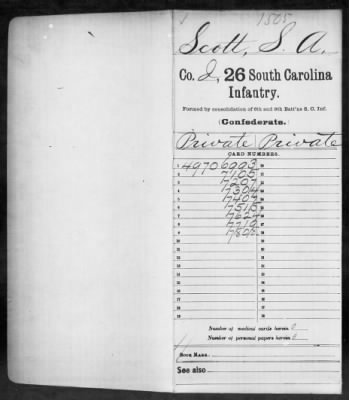 1 1505
Scott, S. A.
Co. I, 26 South Carolina
Infantry.
Formed by consolidation of 6th and 9th Batt'ns S. C. Inf.
(Confederate.)
Private Private
CARD NUMBERS.
1 49706993
2 7105
3 7207
4 7304
5 7407
6 7515
7 7624
8 7719
9 7895
Number of medical cards herein 0
Number of personal papers herein 0
BOOK MARK:
See also